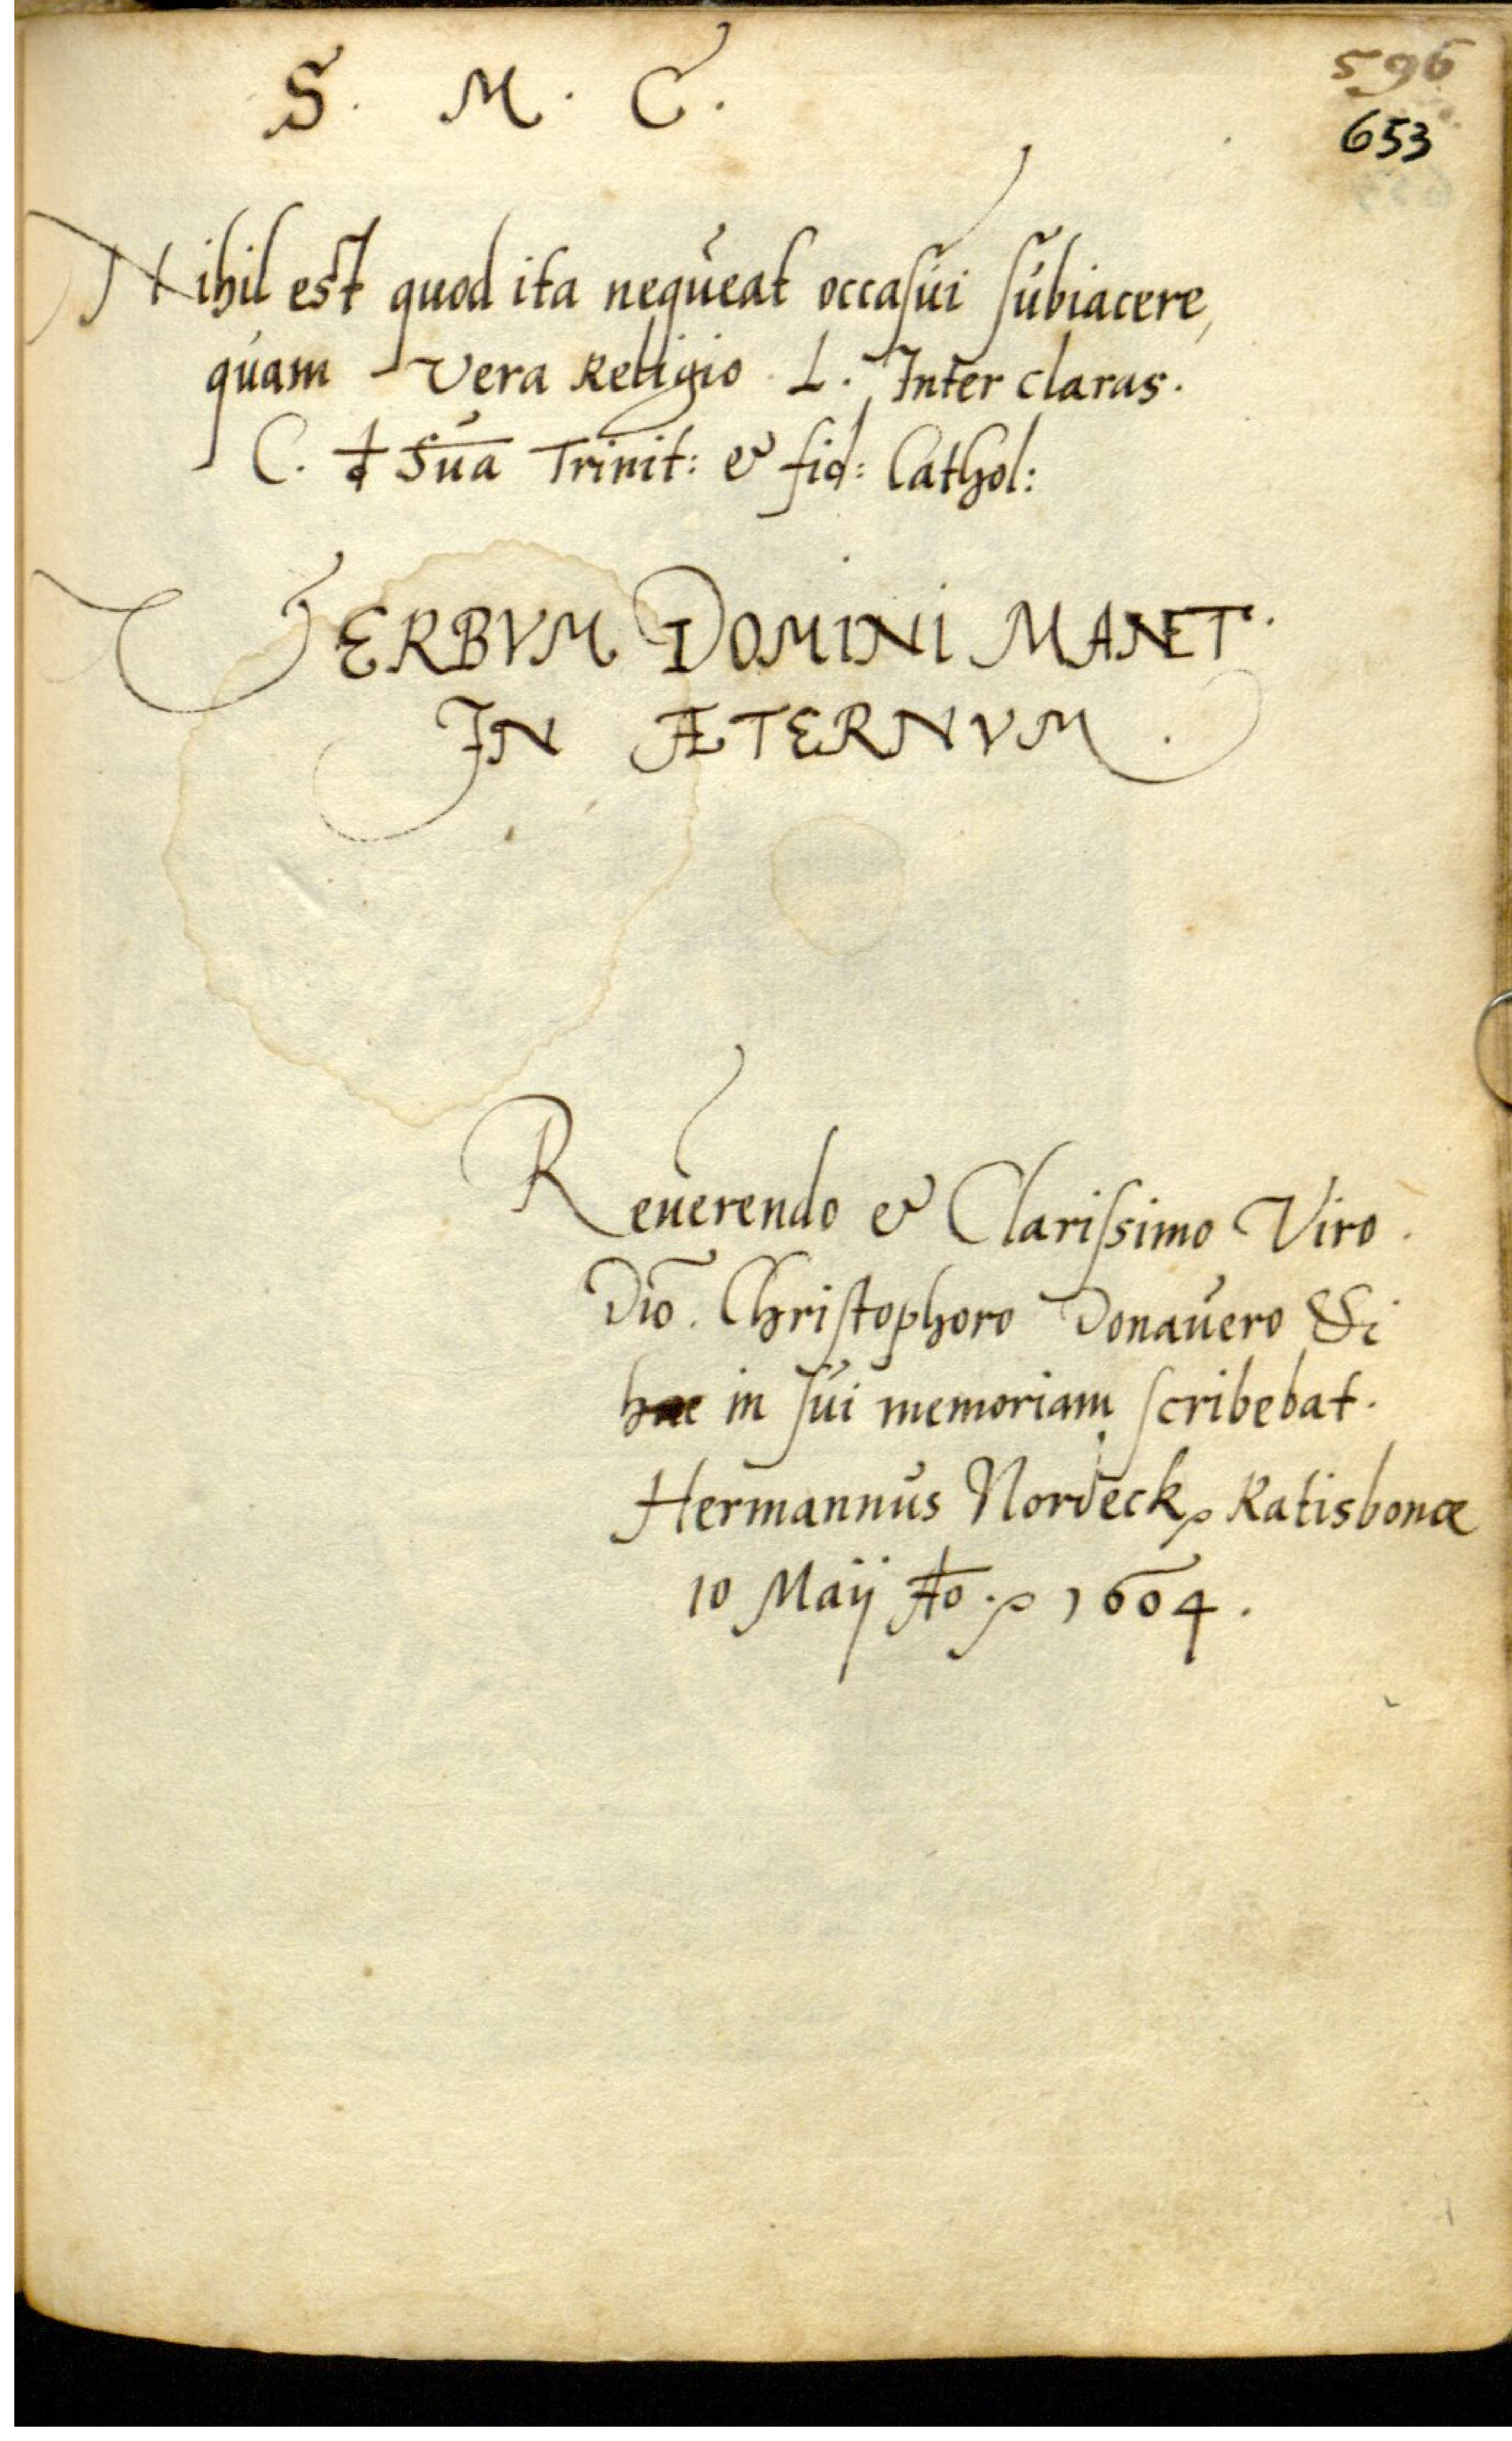 S. M. C.
596
653
Nihil est quod ita nequeat occasui subiacere,
quam Vera Religio. L. Inter claras.
C. Sua Trinit: & fid: Cathol:
VERBVM DOMINI MANET
IN ÆTERNVM.
Reuerendo & Clarissimo Viro.
Dno. Christophoro Donauero
hæc in sui memoriam scribebat.
Hermannus Nordeck Ratisbonæ
10 Maij Ao. 1604.